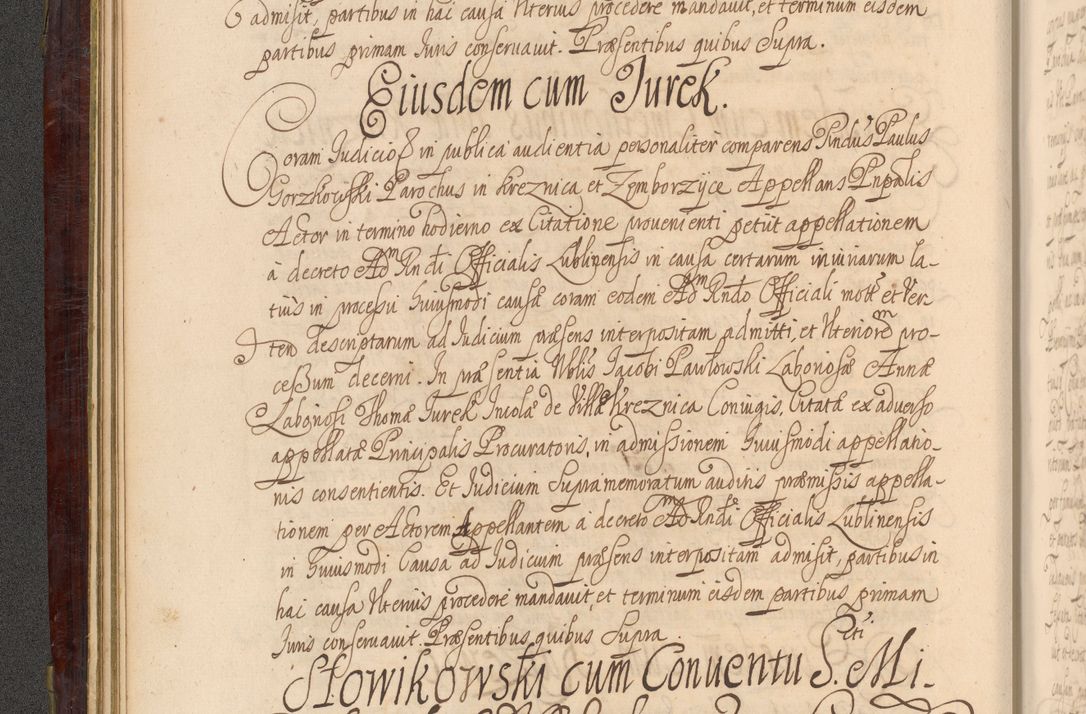 admisit, partibus in hac causa Ulterius procedere mandavit, et terminum eisdem
partibus primam Iuris conservavit. Præsentibus quibus Supra.
Eiusdem cum Jurek.
Coram Iudicioß in publica audientia personaliter comparens Pndus Paulus
Gorzkowski Parochus in Kreznica et Zemborzyce Appellans Pnpalis
Actor in termino hodierno ex Citatione provenienti petiit appellationem
à decreto Adm Rndi Officialis Lublinensis in causa certarum iniuriarum la-
tius in processu huiusmodi causæ coram eodem Adm Rndo Officiali mott et Ver
tend descriptarum ad Iudicium præsens interpositam admitti, et Ulteriorem pro-
ceßum decerni. In præsentia Nblis Jacobi Pawłowski Laboriosæ Annæ
Laboriosi Thomæ Jurek Incolæ de Villa Kreznica Coniugis, Citatæ ex adverso
appellatæ Principalis Procuratoris, in admissionem huiusmodi appellatio-
nis consentientis. Et Iudicium Supramemoratum auditis præmissis appella-
tionem per Actorem Appellantem à decreto Adm Rndi Officialis Lublinensis
in huiusmodi Causa ad Iudicium præsens interpositam admisit, partibus in
hac causa Ulterius procedere mandavit, et terminum eisdem partibus primam
Iuris conservavit. Præsentibus quibus Supra.
Słowikowski cum Conventu S. Mi-